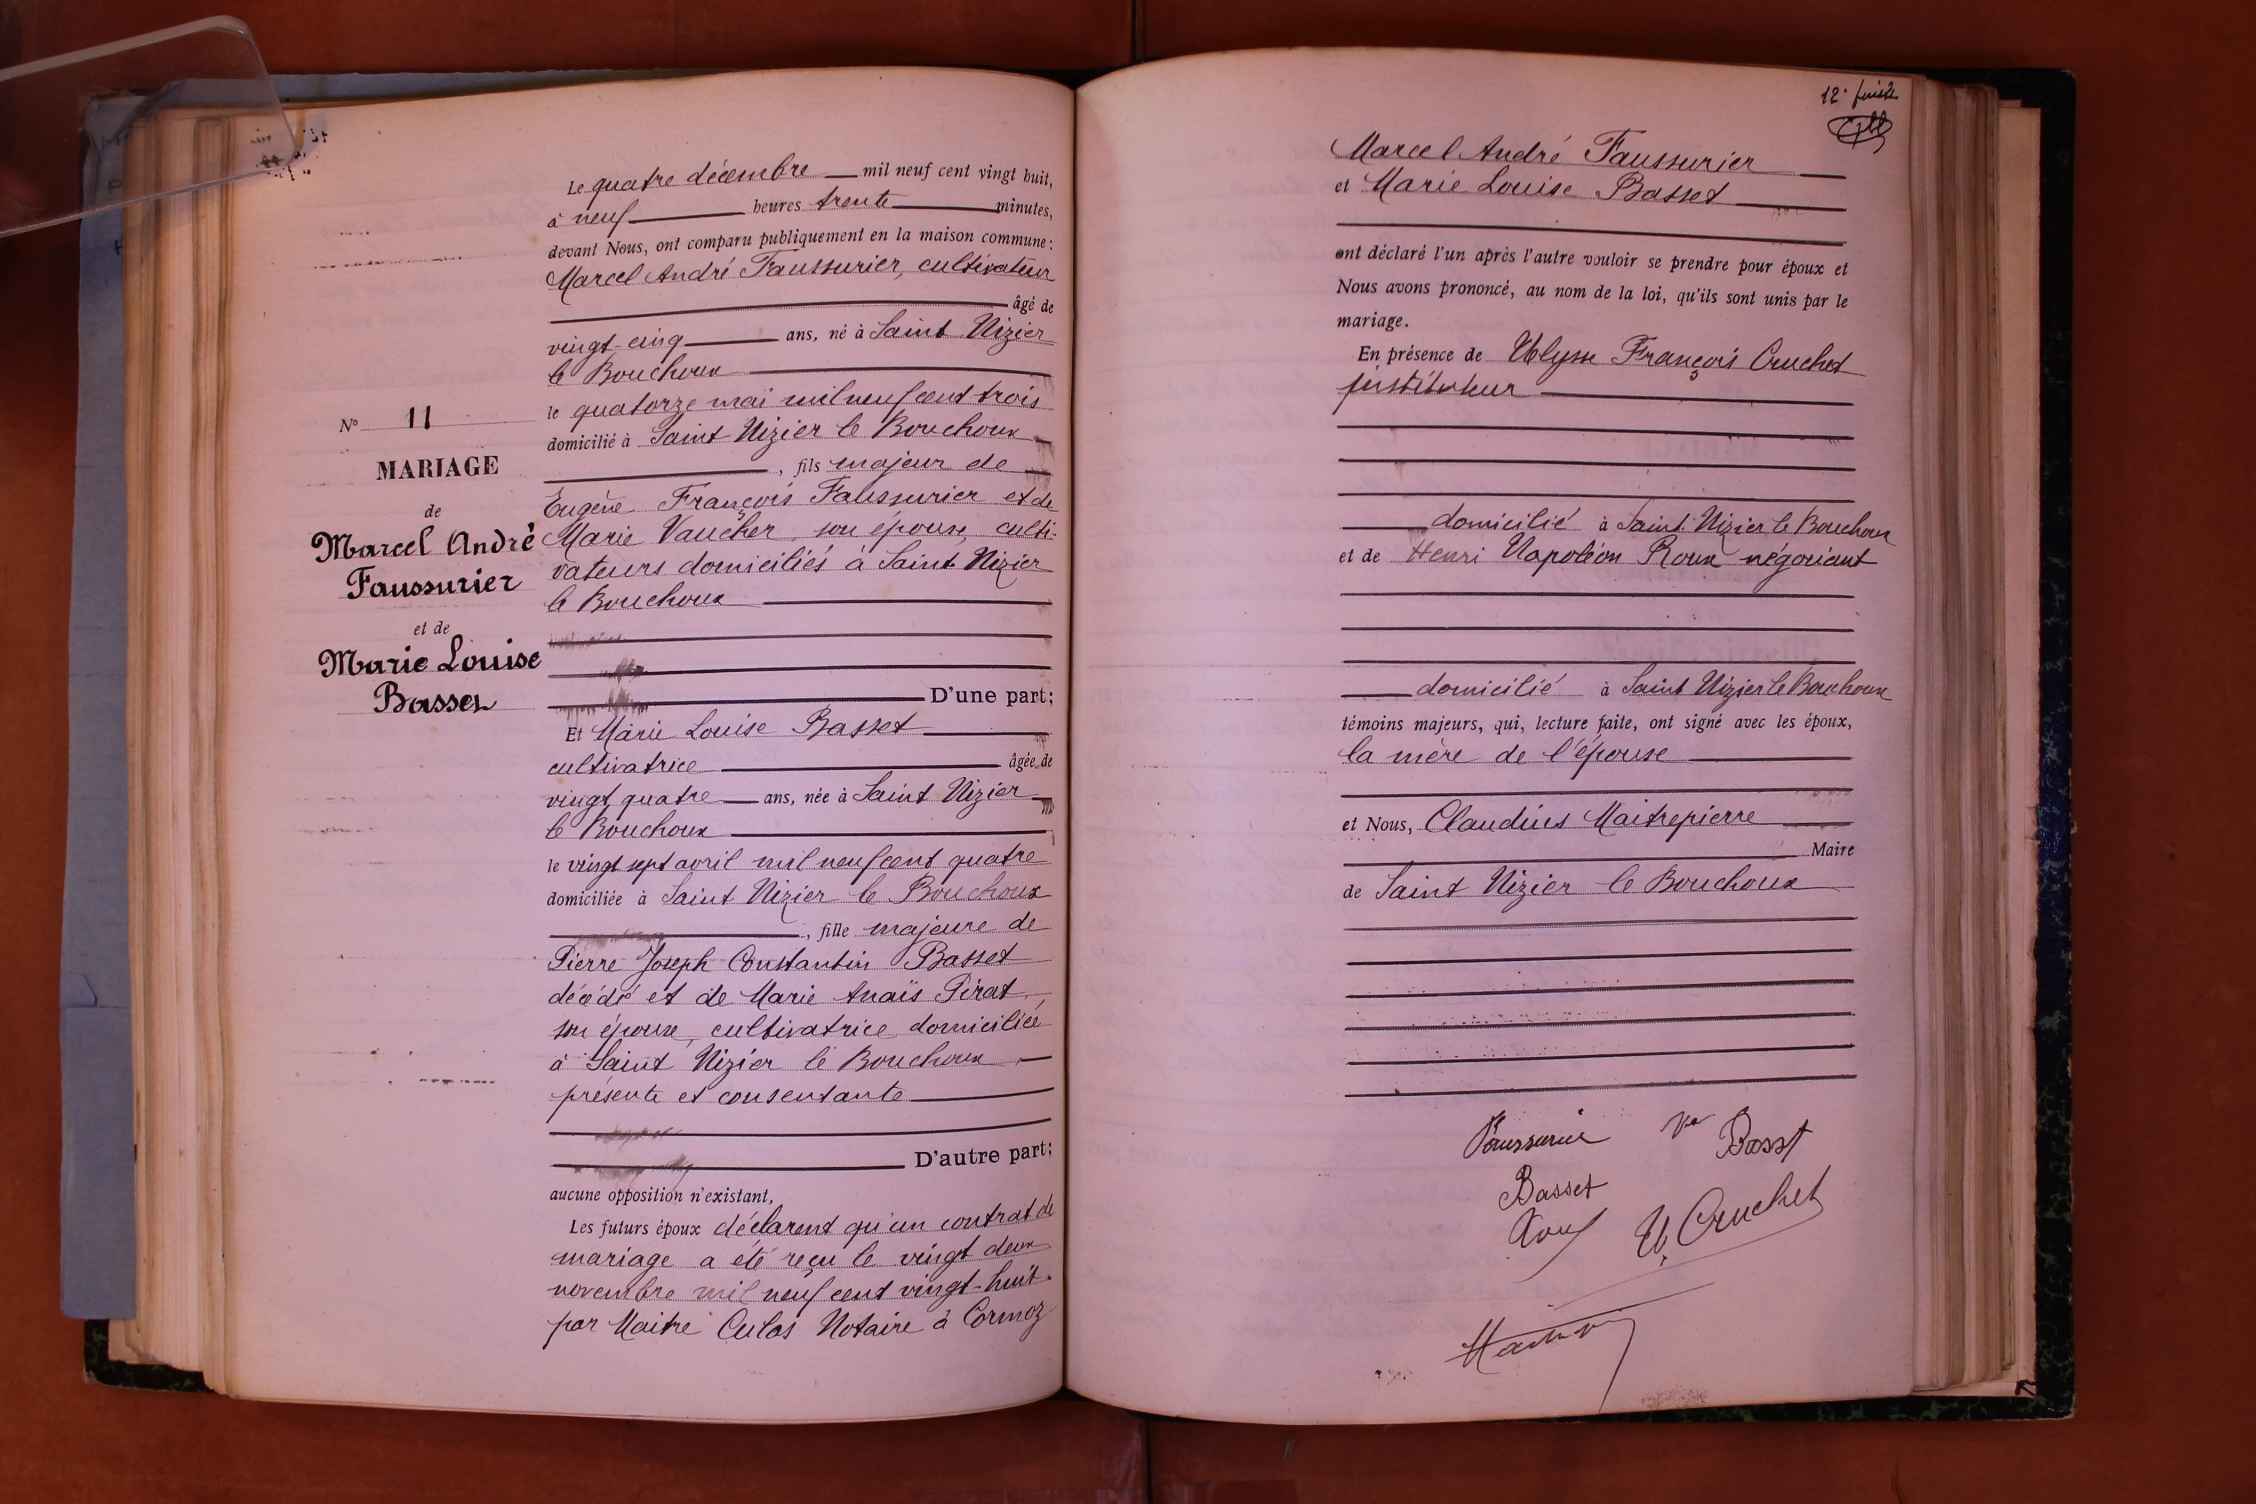 Le quatre décembre mil neuf cent vingt huit,
à neuf heures trente minutes,
devant Nous, ont comparu publiquement en la maison commune :
Marcel André Faussurier, cultivateur
âgé de
vingt-cinq ans, né à Saint Nizier
le Bouchoux
le quatorze mai mil neuf cent trois
domicilié à Saint Nizier le Bouchoux
, fils majeur de
Eugène François Faussurier et de
Marie Vaucher son épouse, culti-
vateurs domiciliés à Saint Nizier
le Bouchoux
D'une part;
Et Marie Louise Basset
cultivatrice âgée de
vingt quatre ans, née à Saint Nizier
le Bouchoux
le vingt sept avril mil neuf cent quatre
domiciliée à Saint Nizier le Bouchoux
, fille majeure de
Pierre Joseph Constantin Basset
décédé et de Marie Anaïs Pirat,
son épouse, cultivatrice domiciliée
à Saint Nizier le Bouchoux,
présente et consentante
D'autre part;
aucune opposition n'existant,
Les futurs époux déclarent qu'un contrat de
mariage a été reçu le vingt deux
novembre mil neuf cent vingt-huit
par Maitre Culas Notaire à Cormoz
N° 11
MARIAGE
de
Marcel André
Faussurier
et de
Marie Louise
Basset
12
Marcel André Faussurier
et Marie Louise Basset
ont déclaré l'un après l'autre vouloir se prendre pour époux et
Nous avons prononcé, au nom de la loi, qu'ils sont unis par le
mariage.
En présence de Ulysse François Cruchet
instituteur
domicilié à Saint Nizier le Bouchoux
et de Henri Napoléon Roux négociant
domicilié à Saint Nizier le Bouchoux
témoins majeurs, qui, lecture faite, ont signé avec les époux,
la mère de l'épouse
et Nous, Claudius Maitrepierre
Maire
de Saint Nizier le Bouchoux
Faussurier Vve Basset
Basset
Roux U. Cruchet